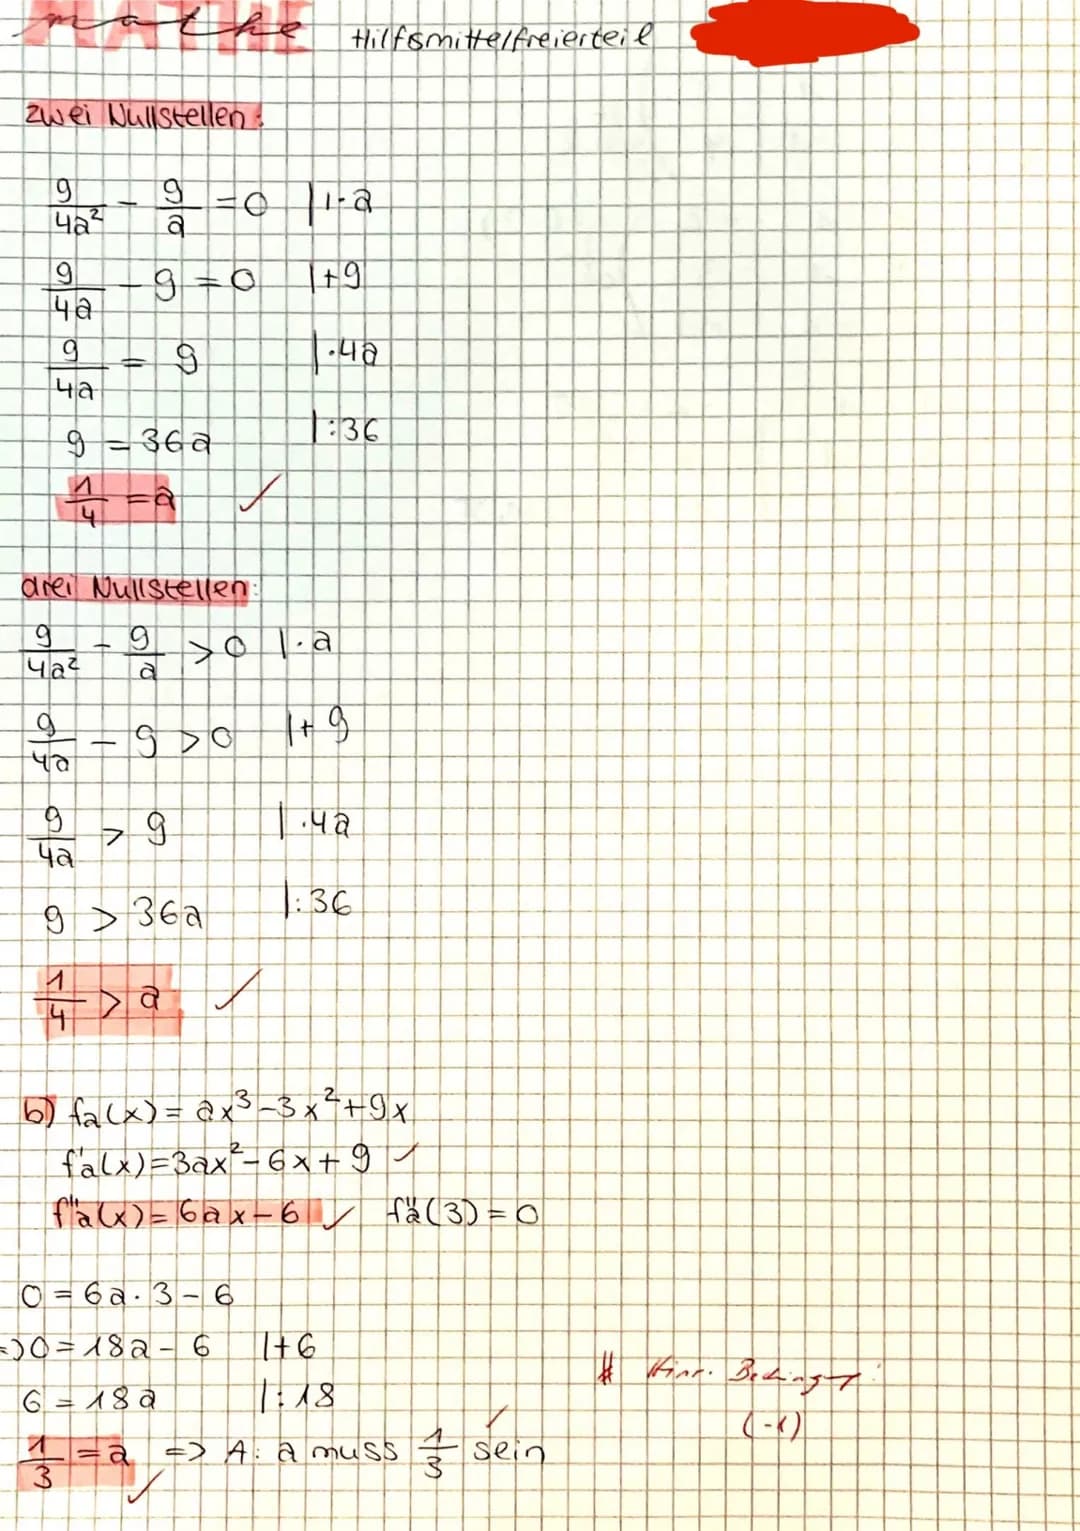 mathe
MATHE Hilfsmittelfreierteil
zwei Nullstellen:
9/4a² - 9/a = 0 | 1·a
9/4a - 9 = 0 |+9
9/4a = 9 |·4a
9 = 36a |:36
1/4 = a ✓
drei Nullstellen:
9/4a² - 9/a > 0 |·a
9/4a - 9 > 0 |+9
9/4a > 9 |·4a
9 > 36a |:36
1/4 > a ✓
b) fa(x) = ax³-3x²+9x
f'a(x)=3ax²-6x+9 ✓
f"a(x)=6ax-6 ✓ f"a(3)=0
0=6a·3-6
=>0=18a-6 |+6
6=18a |:18
1/3=a => A: a muss 1/3 sein ✓
✓
Hinr. Bedingung:
(-1)